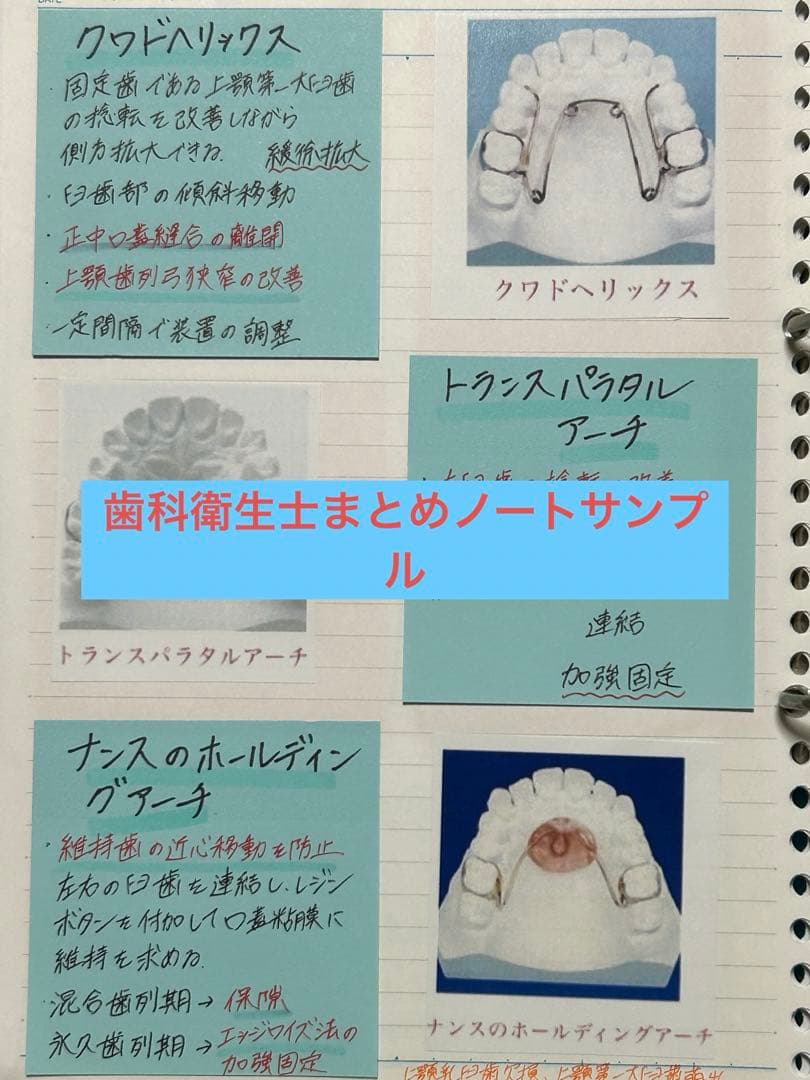 クワドヘリックス
・固定歯である上顎第一大臼歯
の捻転を改善しながら
側方拡大できる. 緩徐拡大
・臼歯部の傾斜移動
・正中口蓋縫合の離開
・上顎歯列弓狭窄の改善
・一定間隔で装置の調整
クワドヘリックス
トランスパラタル
アーチ
歯科衛生士まとめノートサンプ
ル
連結
加強固定
トランスパラタルアーチ
ナンスのホールディン
グアーチ
・維持歯の近心移動を防止
左右の臼歯を連結し、レジン
ボタンを付加して口蓋粘膜に
維持を求める.
・混合歯列期→保隙
永久歯列期→エッジワイズ法の
加強固定
ナンスのホールディングアーチ